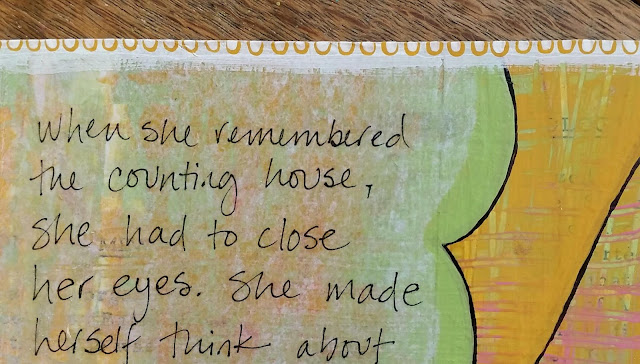 when she remembered
the counting house,
she had to close
her eyes. She made
herself think about